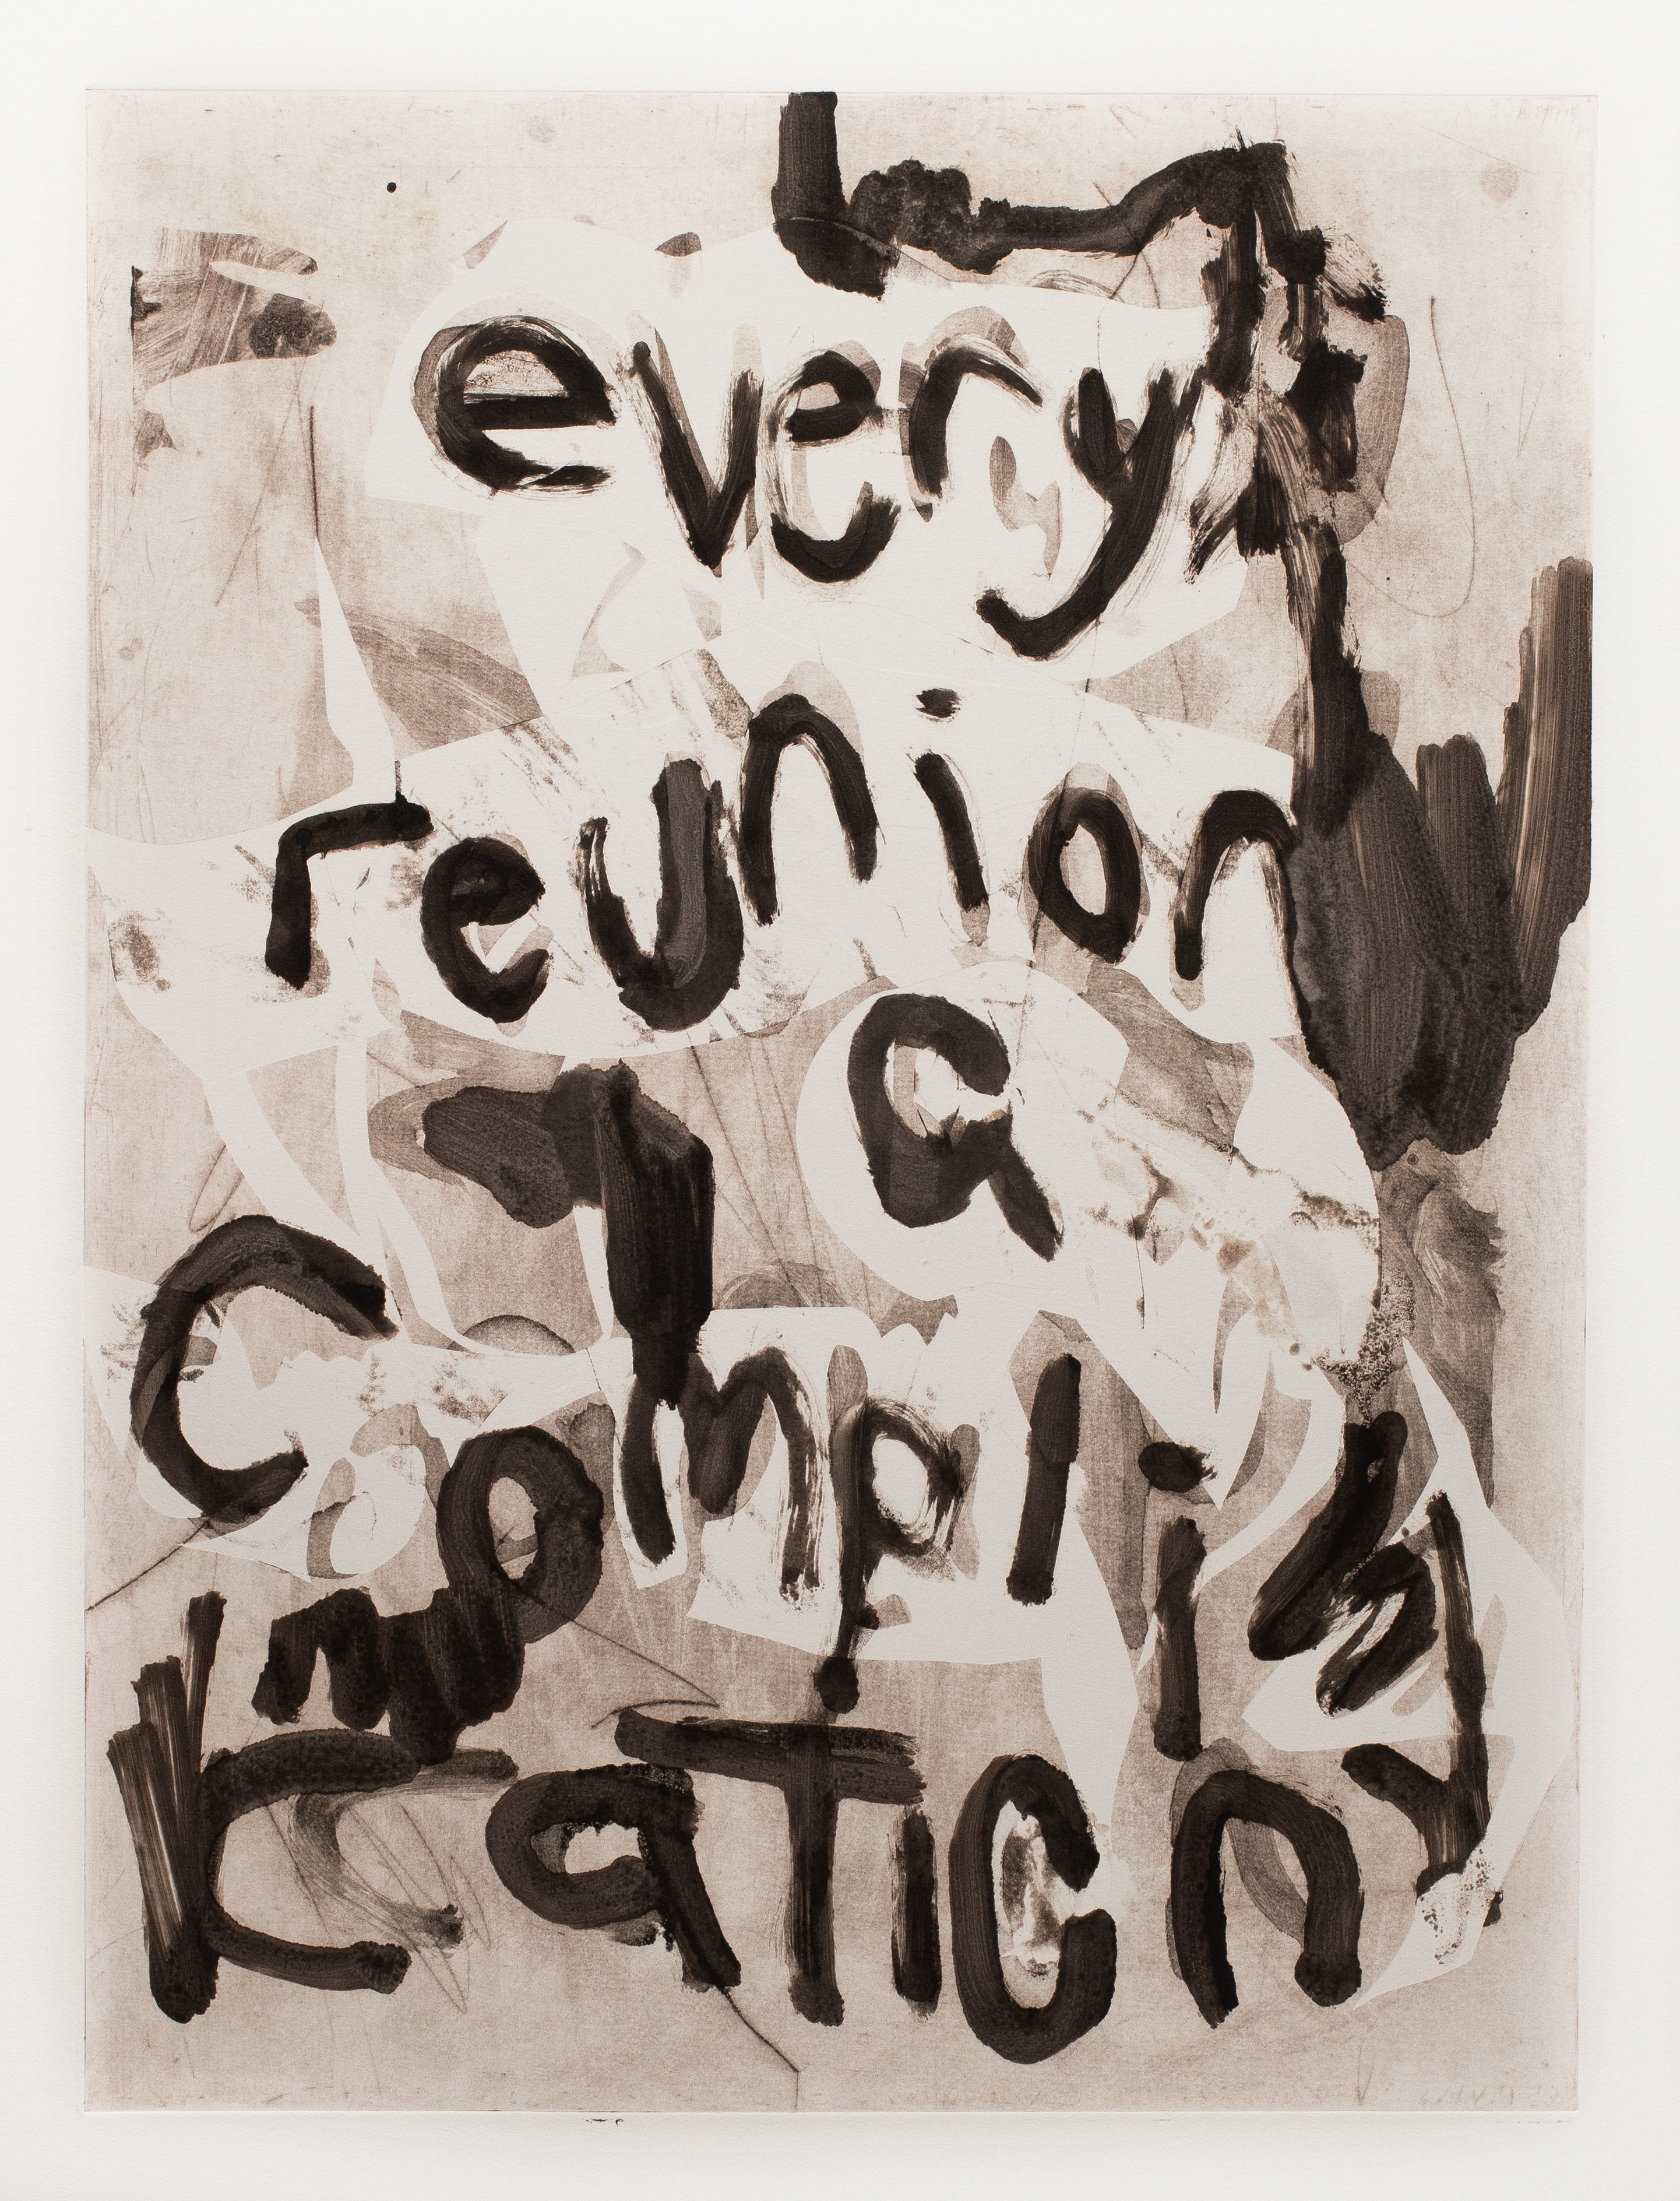 every
reunion
a
Compli
KaTion